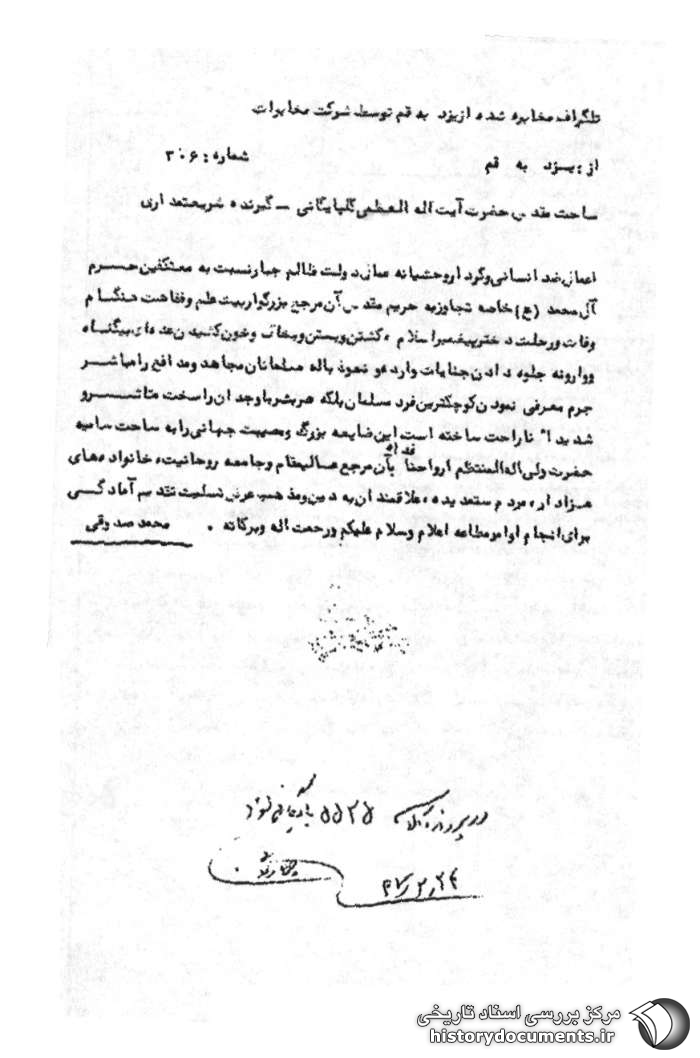 تلگراف مخابره شده از یزد به قم توسط شرکت مخابرات
از : یزد به قم شماره : ۳۰۶
ساحت مقدس حضرت آیت اله العظمی گلپایگانی – گیرنده شریعتمداری
اعمال ضد انسانی و کردار وحشیانه عمال دولت ظالم جبار نسبت به معتکفین حرم
آل محمد (ع) خاصه تجاوز به حریم مقدس آن مرجع بزرگوار بیت علم و فقاهت هنگام
وفات و رحلت دختر پیغمبر اسلام ، کشتن و بستن و بخاک و خون کشیدن عده‌ای بیگناه
و وارونه جلوه دادن جنایات وارده و نعوذ باله مسلمانان مجاهد و مدافع را مباشر
جرم معرفی نمودن کوچکترین فرد مسلمان بلکه هر بشر با وجدان را سخت متاثر و
شدیداً ناراحت ساخته است این ضایعه بزرگ و مصیبت جهانی را به ساحت سامیه
حضرت ولی اله المنتظر ارواحنا فداه بآن مرجع عالیمقام و جامعه روحانیت، خانواده‌های
عزادار، مردم ستمدیده، علاقمندان به دین و مذهب عرض تسلیت تقدیم آمادگی
برای انجام اوامر مطاعه اعلام و سلام علیکم و رحمت اله و برکاته . محمد صدوقی
در پرونده کلاسه
مرکز بررسی اسناد تاریخی
historydocuments.ir